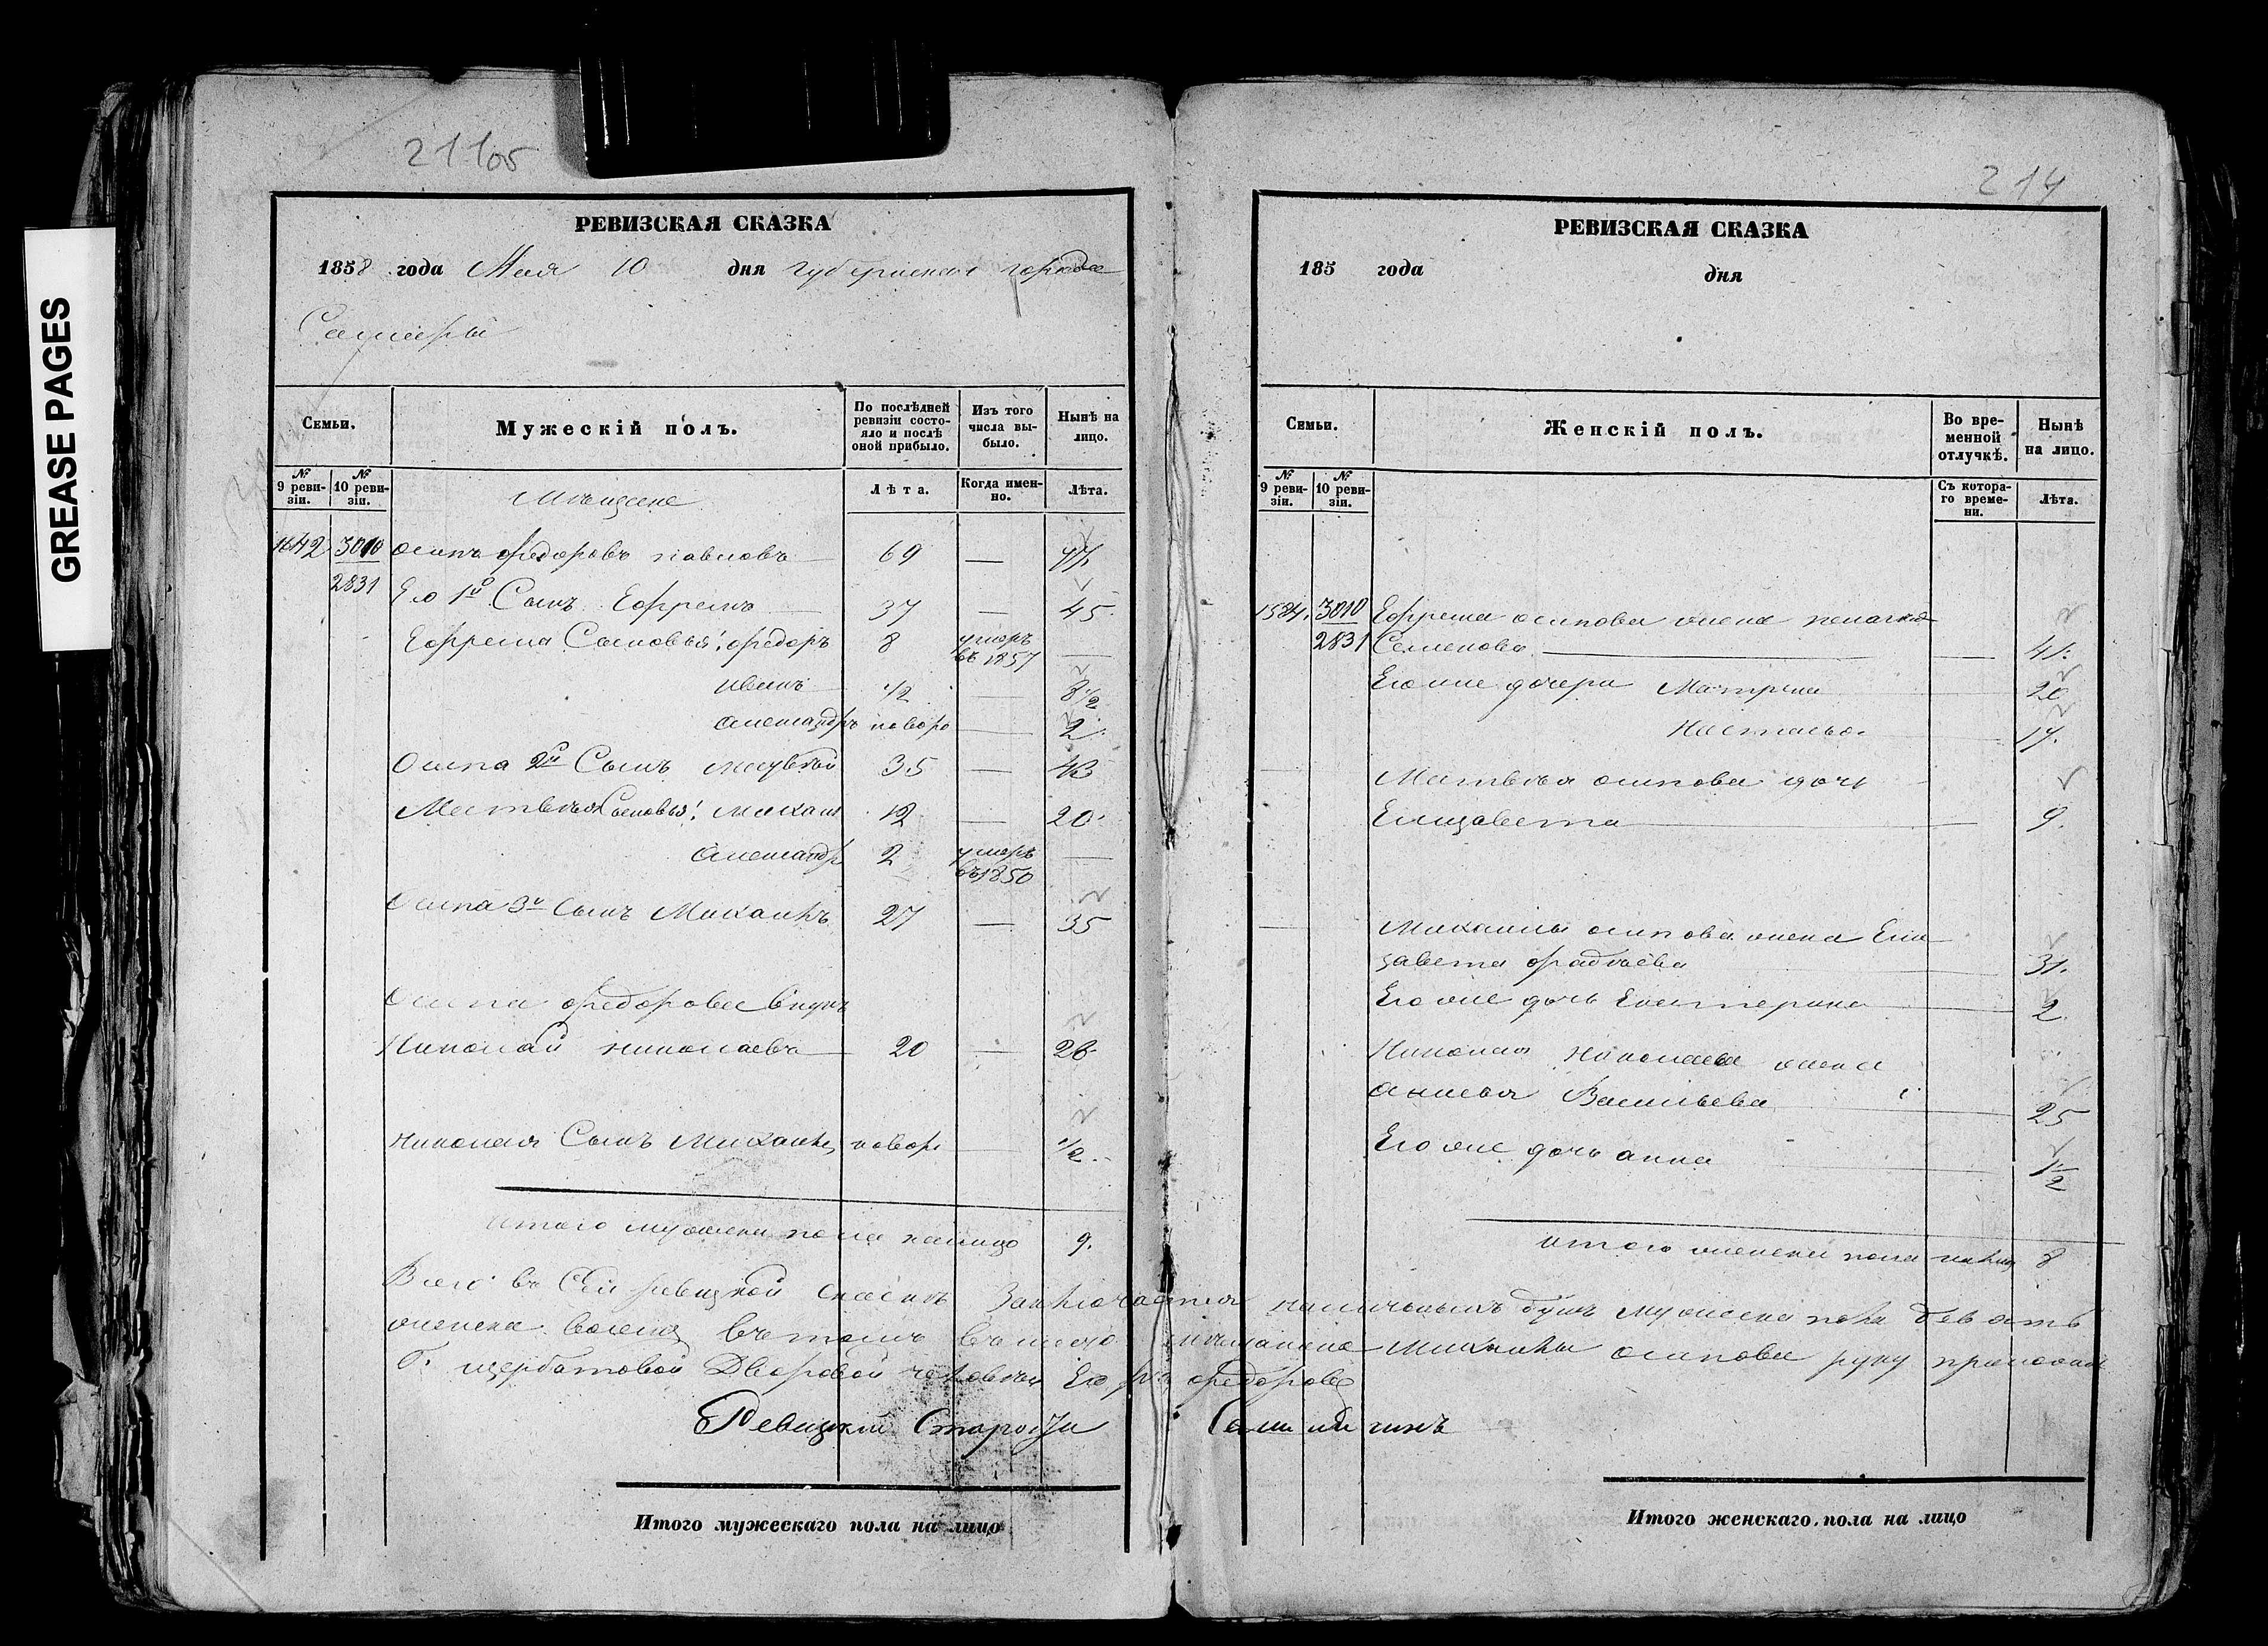 GREASE PAGES
21105
РЕВИЗСКАЯ СКАЗКА
1858 года Мая 10 дня губернскаго города
Самары
Семьи.
Мужескій полъ.
По послѣдней ревизіи состояло и послѣ оной прибыло.
Изъ того числа выбыло.
Нынѣ на лицо.
№ 9 ревизіи.
№ 10 ревизіи.
Лѣта.
Когда именно.
Лѣта.
Мѣщане
1642 3010 Осипъ Федоровъ Павловъ 69 — 77.
2831 Его 1й Сынъ Ефремъ — 37 — 45
Ефрема Сыновья: Федоръ 8 умеръ въ 1857 —
Иванъ 1/2 — 8 1/2
Александръ новоро — 2.
Осипа 2й Сынъ Матвѣй 35 — 43
Матвѣя Сыновья: Михаил 12 — 20.
Александр 2 умеръ въ 1850 —
Осипа 3й Сынъ Михаилъ 27 — 35
Осипа Федорова внукъ
Николай Николаевъ — 20 — 28.
Николая Сынъ Михаилъ новор — 1/2.
Итого мужеска пола налицо 9.
214
РЕВИЗСКАЯ СКАЗКА
185 года дня
Семьи.
Женскій полъ.
Во временной отлучкѣ.
Нынѣ на лицо.
№ 9 ревизіи.
№ 10 ревизіи.
Съ котораго времени.
Лѣта.
1584. 3010 Ефрема Осипова жена
2831 Семенова — 41.
Его же дочери Матрена 20
Настасья 17.
Матвѣя Осипова дочь
Елизавета — 9.
Михаилы Осипова жена Ели
завета Фадѣева 31.
Его же дочь Екатерина 2
Николая Николаева жена
Анисья Васильева 25
Его же дочь Анна 1 1/2
Итого женска пола налиц 8
Всего въ Сей ревизкой сказкѣ Заключается наличныхъ душъ мужеска пола девять
женска восемь въ томъ вмѣсто мѣщанина Михаилы Осипова руку приложил
Г. Щербатовой Дворовой человѣкъ Егоръ Федоровъ
Ревизкій Староста
Итого мужескаго пола на лицо
Итого женскаго пола на лицо